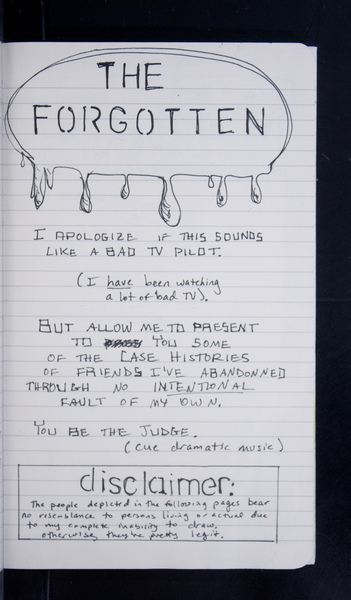 THE
FORGOTTEN
I APOLOGIZE IF THIS SOUNDS
LIKE A BAD TV PILOT.
(I have been watching
a lot of bad TV).
BUT ALLOW ME TO PRESENT
TO YOU SOME
OF THE CASE HISTORIES
OF FRIENDS I'VE ABANDONNED
THROUGH NO INTENTIONAL
FAULT OF MY OWN.
YOU BE THE JUDGE.
(cue dramatic music)
disclaimer:
The people depicted in the following pages bear
no resemblance to persons living or actual due
to my complete inability to draw,
otherwise, they're pretty legit.